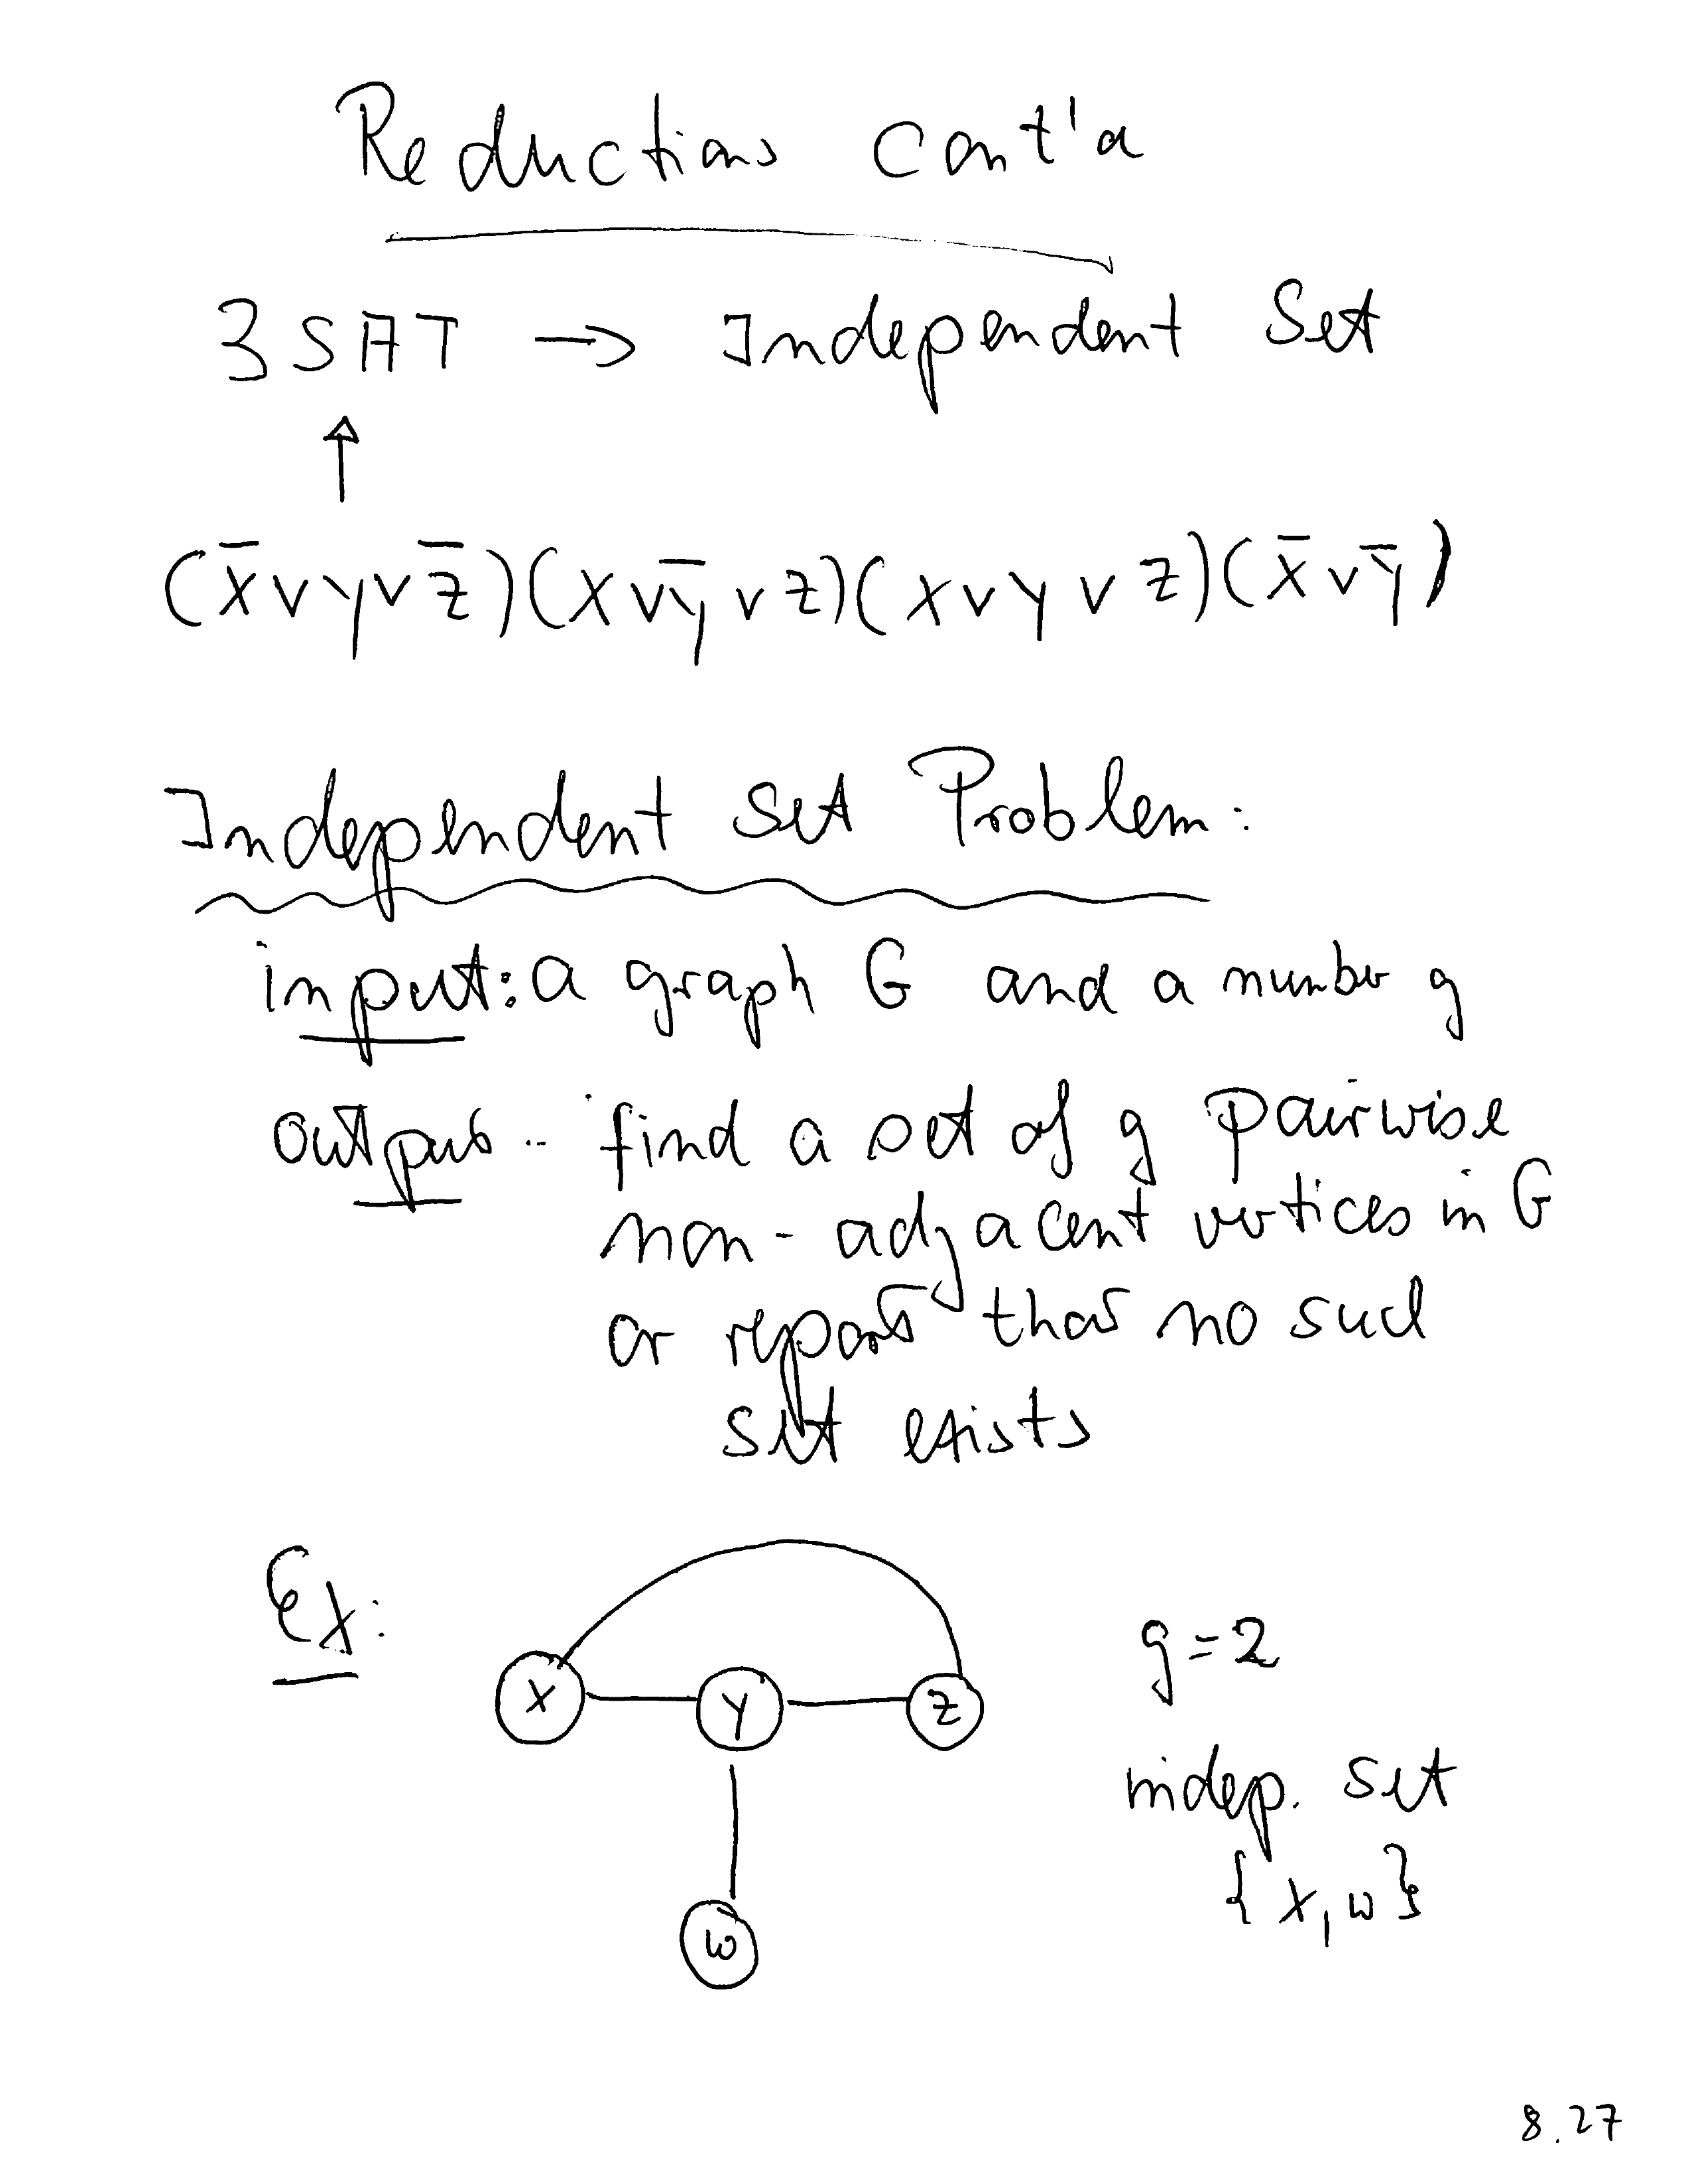 Reductions cont'd
3SAT → Independent Set
↑
(x̄ ∨ y ∨ z̄)(x ∨ ȳ ∨ z)(x ∨ y ∨ z)(x̄ ∨ ȳ)
Independent Set Problem:
input: a graph G and a number g
output: find a set of g pairwise
non-adjacent vertices in G
or report that no such
set exists
Ex:
g=2
X Y Z
indep. set
{x, w}
w
8.27